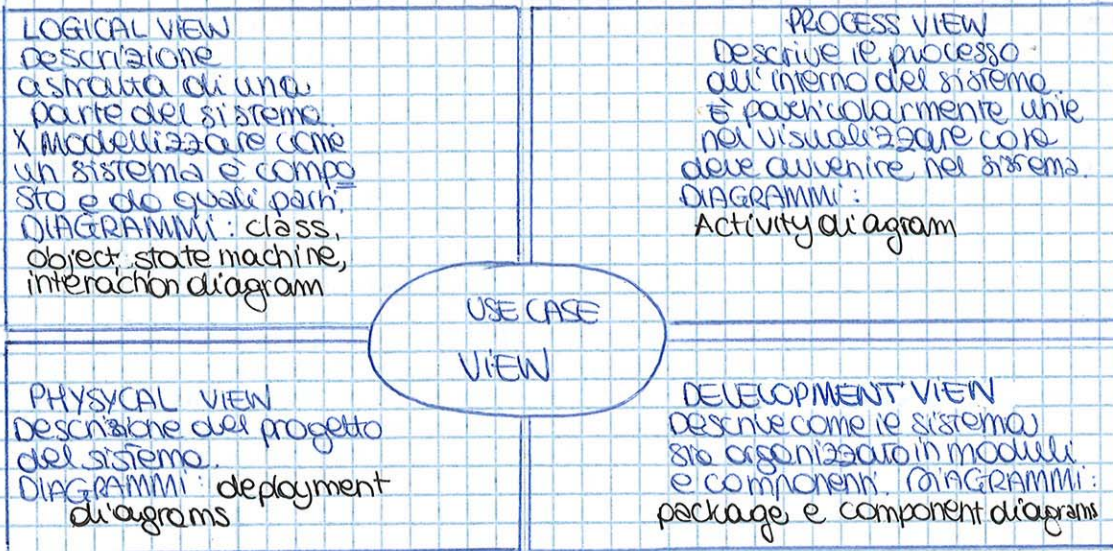 LOGICAL VIEW
Descrizione
astratta di una
parte del sistema.
X modellizzare come
un sistema è compo
sto e da quali parti.
DIAGRAMMI: class,
object, state machine,
interaction diagram
PROCESS VIEW
Descrive il processo
all'interno del sistema.
È particolarmente utile
nel visualizzare cosa
deve avvenire nel sistema.
DIAGRAMMI:
Activity diagram
USE CASE
VIEW
PHYSYCAL VIEW
Descrizione del progetto
del sistema.
DIAGRAMMI: deployment
diagrams
DEVELOPMENT VIEW
Descrive come il sistema
sia organizzato in moduli
e componenti. DIAGRAMMI:
package e component diagrams